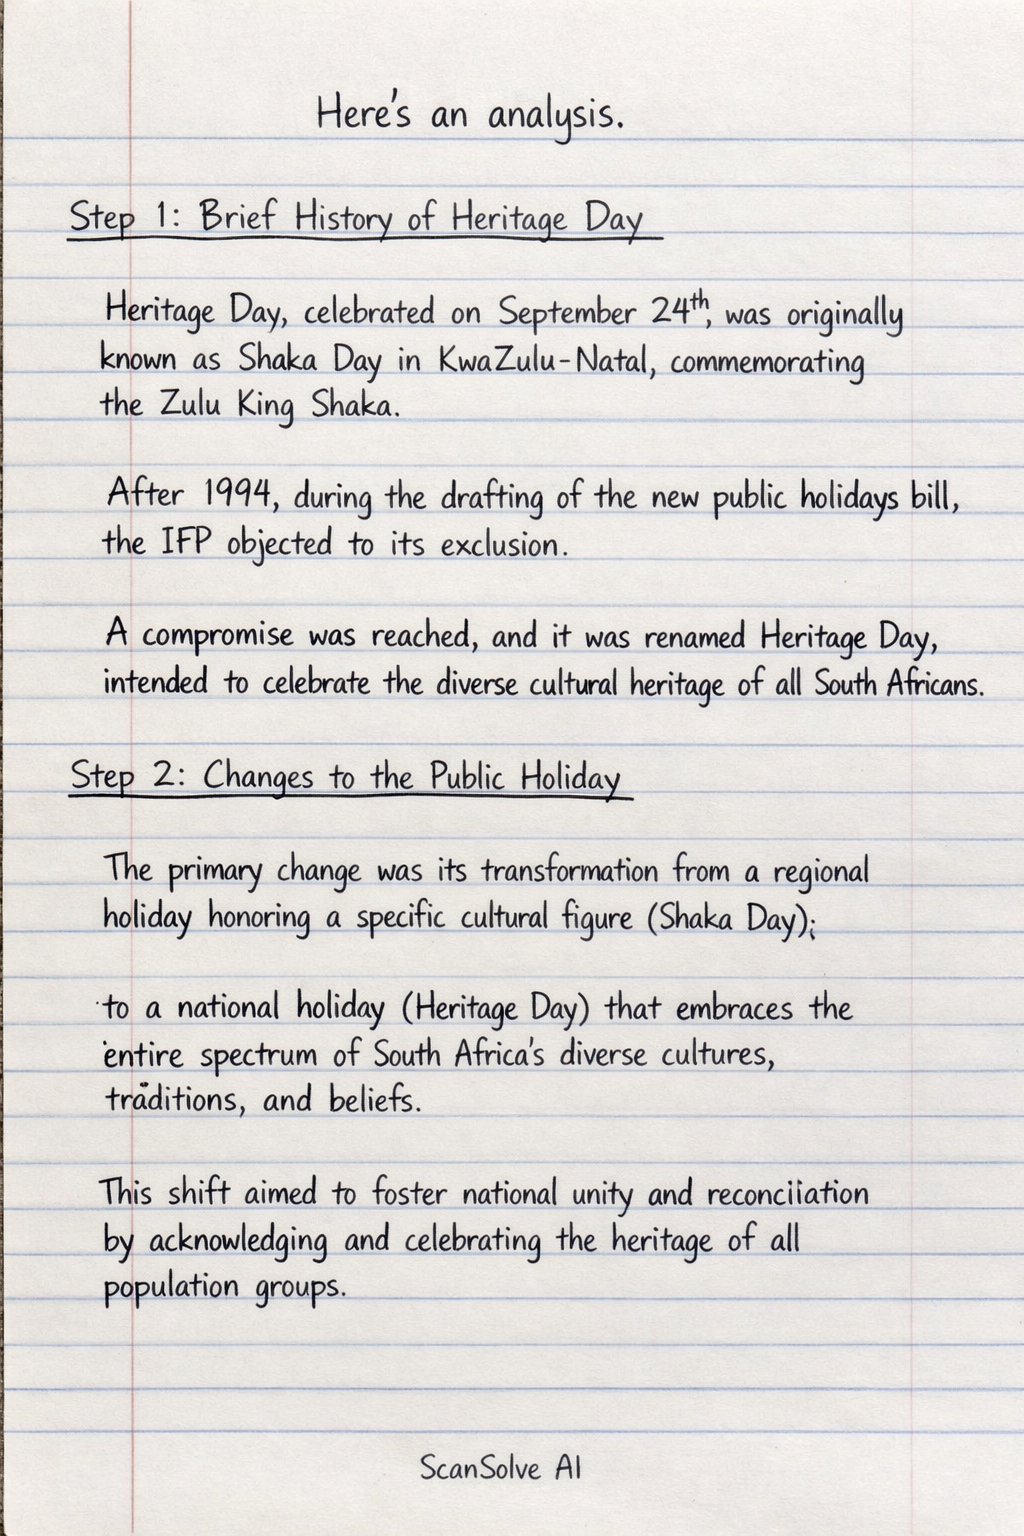 Here's an analysis.
Step 1: Brief History of Heritage Day
Heritage Day, celebrated on September 24th, was originally
known as Shaka Day in KwaZulu-Natal, commemorating
the Zulu King Shaka.
After 1994, during the drafting of the new public holidays bill,
the IFP objected to its exclusion.
A compromise was reached, and it was renamed Heritage Day,
intended to celebrate the diverse cultural heritage of all South Africans.
Step 2: Changes to the Public Holiday
The primary change was its transformation from a regional
holiday honoring a specific cultural figure (Shaka Day);
to a national holiday (Heritage Day) that embraces the
entire spectrum of South Africa's diverse cultures,
traditions, and beliefs.
This shift aimed to foster national unity and reconciliation
by acknowledging and celebrating the heritage of all
population groups.
ScanSolve AI